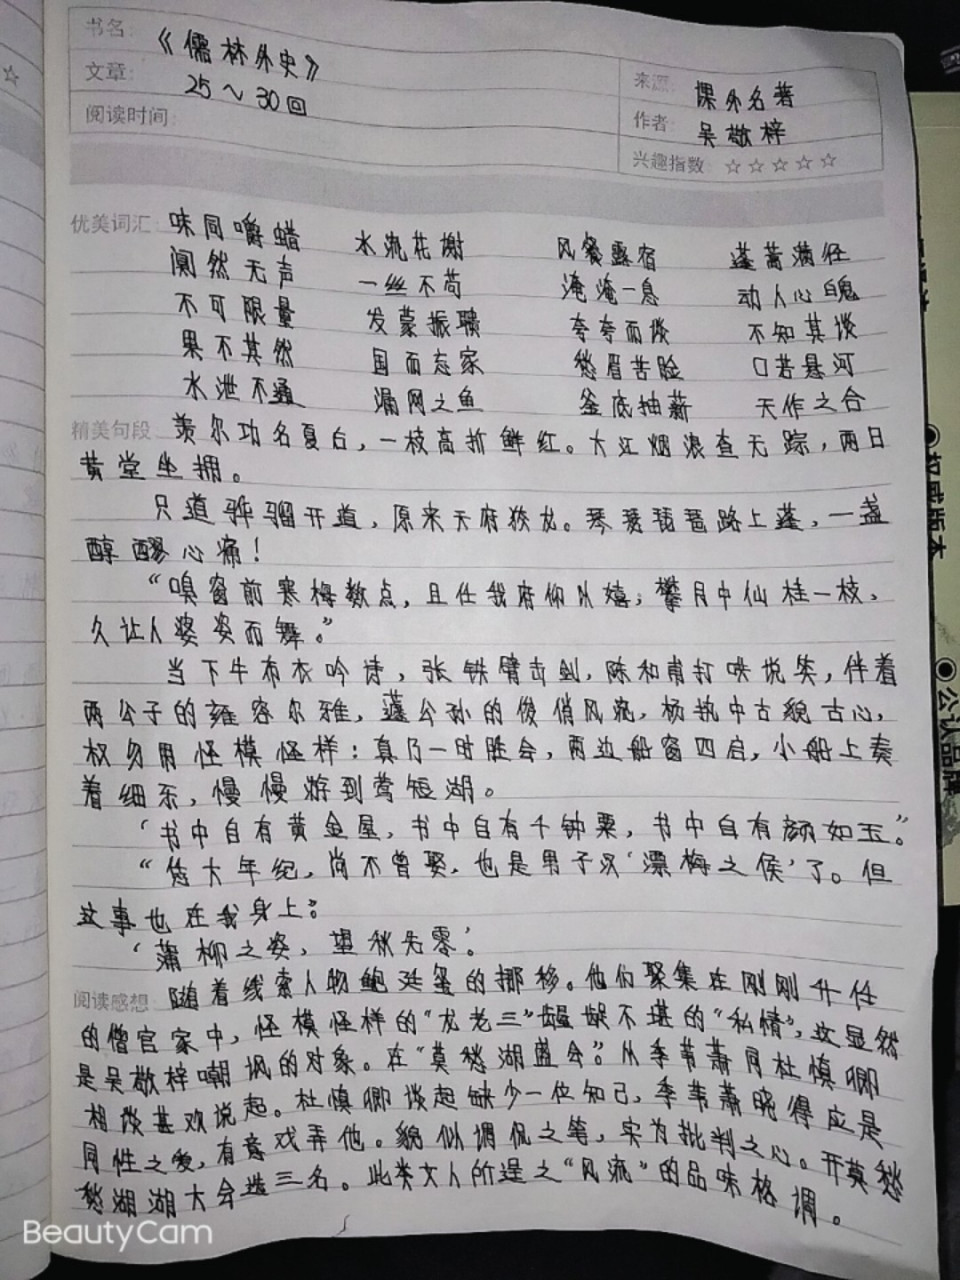 书名: 《儒林外史》
文章: 25～30回
阅读时间:
来源: 课外名著
作者: 吴敬梓
兴趣指数: ☆☆☆☆☆
优美词汇 味同嚼蜡 水流花谢 风餐露宿 蓬蒿满径
阒然无声 一丝不苟 淹淹一息 动人心魄
不可限量 发蒙振聩 夸夸而谈 不知其谈
果不其然 国而忘家 愁眉苦脸 口若悬河
水泄不通 漏网之鱼 釜底抽薪 天作之合
精美句段 羡尔功名夏白,一枝高折鲜红。大江烟浪杳无踪,两日
黄堂坐拥。
只道骅骝开道,原来天府夔龙。琴瑟琵琶路上逢,一盏
醇醪心痛!
“嗅窗前寒梅数点,且任我俯仰以嬉;攀月中仙桂一枝,
久让人婆娑而舞。”
当下牛布衣吟诗,张铁臂击剑,陈和甫打哄说笑,伴着
两公子的雍容尔雅,蘧公孙的俊俏风流,杨执中古貌古心,
权勿用怪模怪样:真乃一时胜会,两边船窗四启,小船上奏
着细乐,慢慢游到莺脰湖。
‘书中自有黄金屋,书中自有千钟粟,书中自有颜如玉。”
“恁大年纪,尚不曾娶,也是男子汉‘摽梅之候’了。但
这事也在我身上。”
‘蒲柳之姿,望秋先零’.
阅读感想 随着线索人物鲍廷玺的挪移。他们聚集在刚刚升任
的僧官家中,怪模怪样的“龙老三”龌龊不堪的“私情”,这显然
是吴敬梓嘲讽的对象。在“莫愁湖盛会”。从季苇萧同杜慎卿
相谈甚欢说起。杜慎卿谈起缺少一位知己,季苇萧晓得应是
同性之爱,有意戏弄他。貌似调侃之笔,实为批判之心。开莫愁
愁湖湖大会选三名。此类文人所逞之“风流”的品味格调。
权威版本
公认品牌
BeautyCam